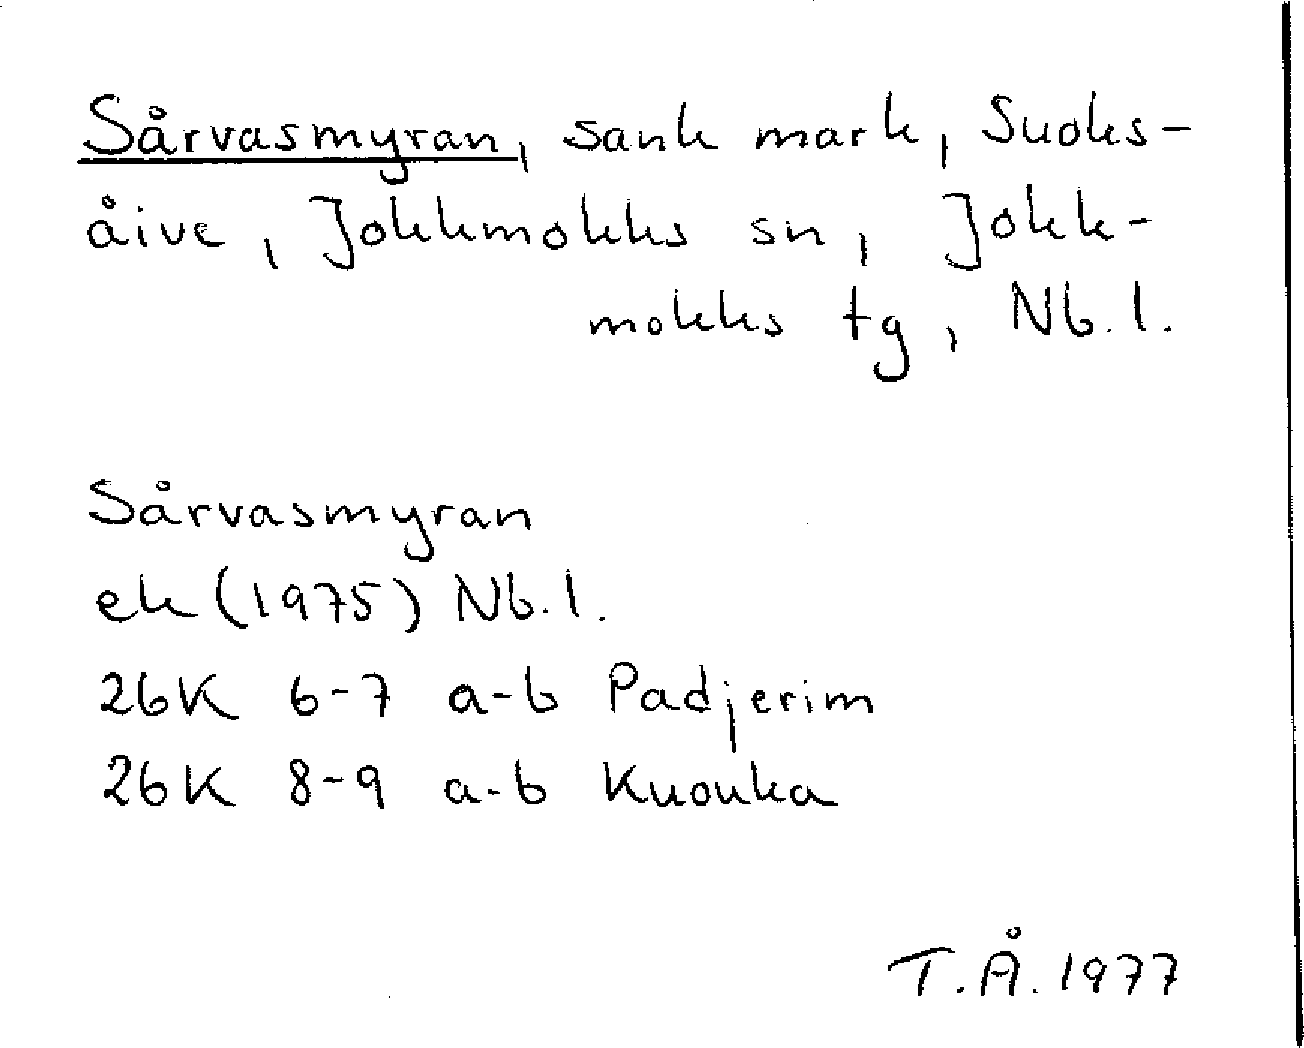 Sårvasmyran, sank mark, Suoks-
åive, Jokkmokks sn, Jokk-
mokks tg, Nb. l.
Sårvasmyran
ek (1975) Nb. l.
26K 6-7 a-b Padjerim
26K 8-9 a-b Kuouka
T.Å. 1977